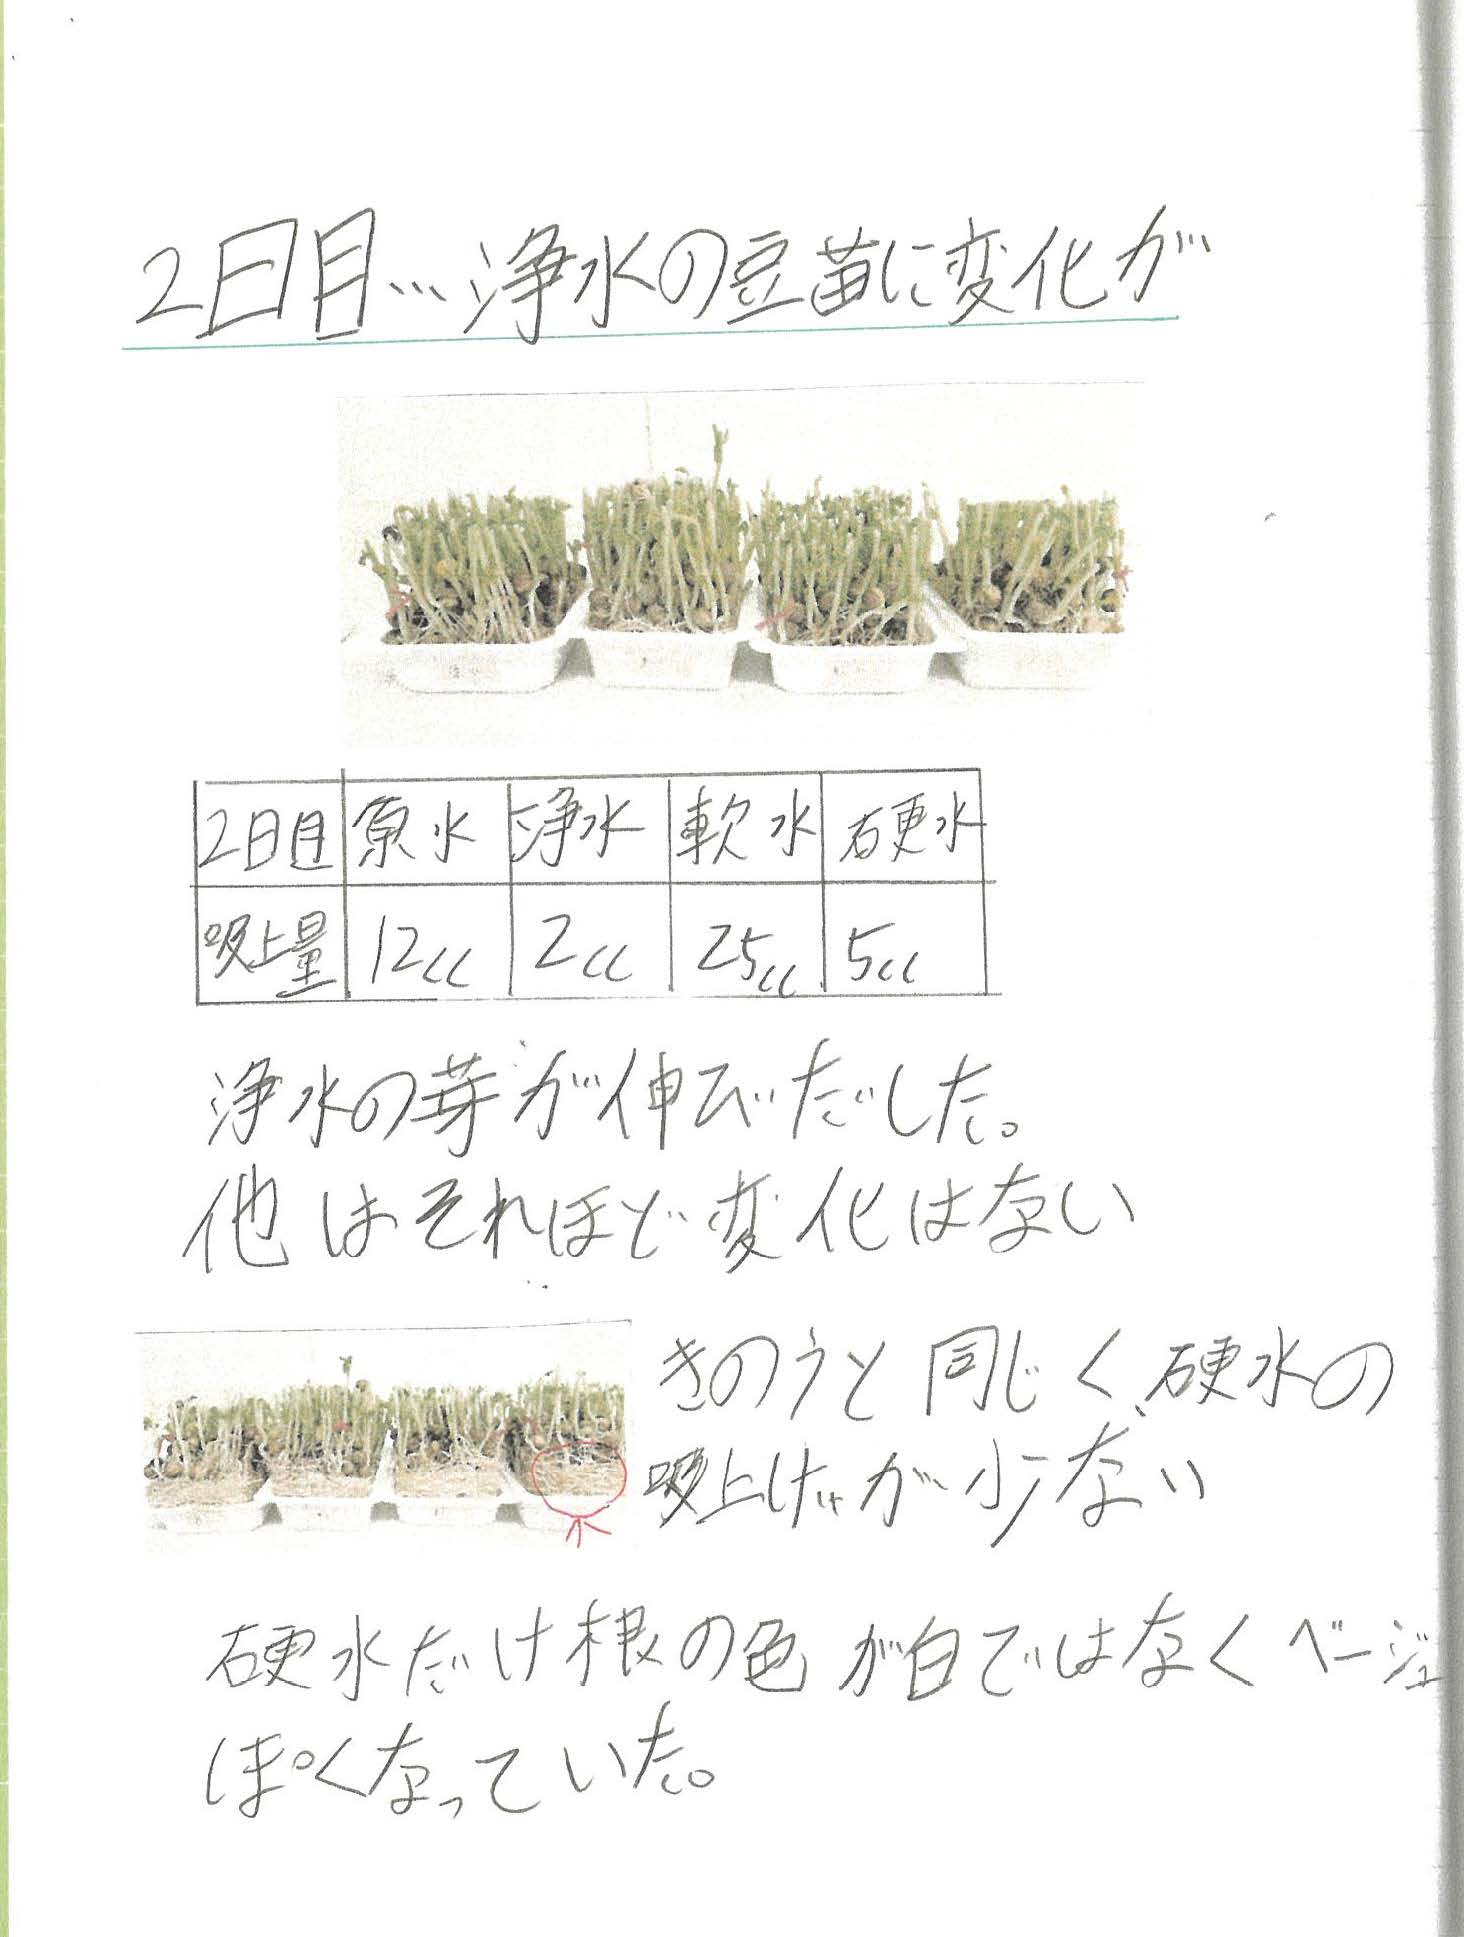 2日目…浄水の豆苗に変化が
2日目 原水 浄水 軟水 硬水
吸上量 12cc 2cc 25cc 5cc
浄水の芽が伸びだした。
他はそれほど変化はない
きのうと同じく、硬水の
吸上げが少ない
硬水だけ根の色が白ではなくベージュ
ぽくなっていた。